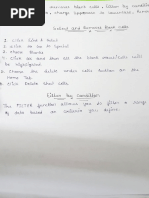 remove blank cells, Filter by condition
, change uppercase to lowercase, lower
Select and Remove Blank cells
1. click Find & Select
2. click on Go To Special
3. choose Blanks
4. click OK and then all the blank rows/cells will be highlighted
5. choose the delete under cells section on the Home Tab
6. click Delete Sheet Rows
Filter by condition:
The FILTER function allows you to filter a range of data based on criteria you define.